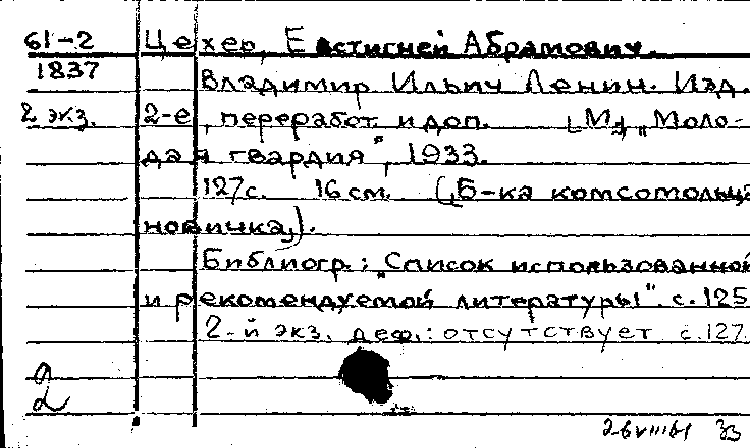 61-2 Цехер, Евстигней Абрамович.
1837 Владимир Ильич Ленин. Изд.
2 экз. 2-е, переработ. и доп. [М.], „Моло-
дая гвардия", 1933.
127с. 16 см. („Б-ка комсомольца
новичка„).
Библиогр.: „Список использованной
и рекомендуемой литературы". с.125
2-й экз. деф.: отсутствует с.127.
2